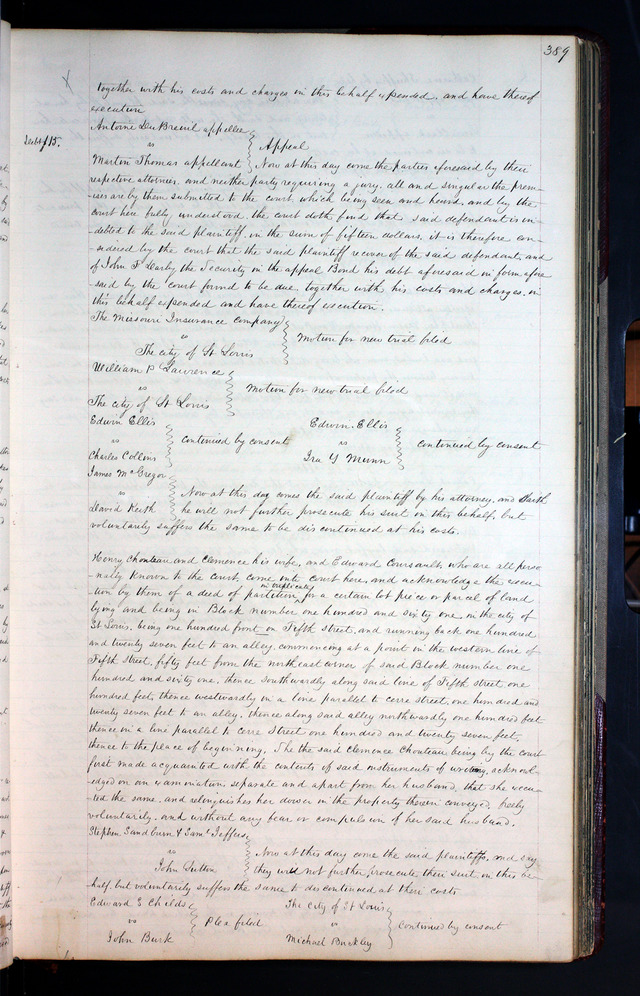 389
together with his costs and charges in this behalf expended, and have thereof
execution
Antoine DuBreuil appellee
vs
Martin Thomas appellant
Appeal
Debt $15.
Now at this day come the parties aforesaid by their
respective attornies, and neither party requiring a jury, all and singular the prem-
-ises are by them submitted to the court, which being seen and heard, and by the
court here fully understood, the court doth find that said defendant is in-
debted to the said plaintiff in the sum of fifteen dollars, it is therefore con-
-sidered by the court that the said plaintiff recover of the said defendant, and
of John F Darby the Security in the appeal Bond his debt aforesaid in form afore
said by the court found to be due, together with his costs and charges, in
this behalf expended and have thereof execution.
The Missouri Insurance Company
vs
The city of St Louis
Motion for new trial filed
William P Lawrence
vs
The city of St Louis
Motion for new trial filed
Edwin Ellis
vs
Charles Collins
continued by consent
Edwin Ellis
vs
Ira Y Munn
continued by consent
James McGregor
vs
David Keith
Now at this day comes the said plaintiff by his attorney, and saith
he will not further prosecute his suit in this behalf, but
voluntarily suffers the same to be discontinued at his costs.
Henry Chouteau and Clemence his wife, and Edward Coursault, who are all perso
nally known to the court, come into court here, and acknowledge the execu-
tion by them of a deed of partition in duplicate for a certain lot piece or parcel of land
lying and being in Block number one hundred and sixty one, in the city of
St Louis, being one hundred front on Fifth street, and running back one hundred
and twenty seven feet to an alley, commencing at a point in the western line of
Fifth street, fifty feet from the north east corner of said Block number one
hundred and sixty one, thence southwardly along said line of Fifth street, one
hundred feet, thence westwardly on a line parallel to cerre street, one hundred and
twenty seven feet to an alley, thence along said alley northwardly one hundred feet
thence in a line parallel to Cerre Street one hundred and twenty seven feet,
thence to the place of beginning. She the said Clemence Chouteau being by the court
first made acquainted with the contents of said instruments of writing, acknowl-
edged on an examination separate and apart from her husband, that she execu-
ted the same, and relinquishes her dower in the property therein conveyed, freely
voluntarily, and without any fear or compulsion of her said husband.
Stephen Sandburn & Saml Jeffries
vs
John Sutton
Now at this day come the said plaintiffs, and say
they will not further prosecute their suit in this be-
half, but voluntarily suffers the same to discontinued at their costs
Edward E Childs
vs
John Burk
Plea filed
The city of St Louis
vs
Michael Buckley
Continued by consent